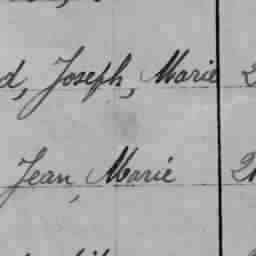 d, Joseph, Marie 2
Jean, Marie 2